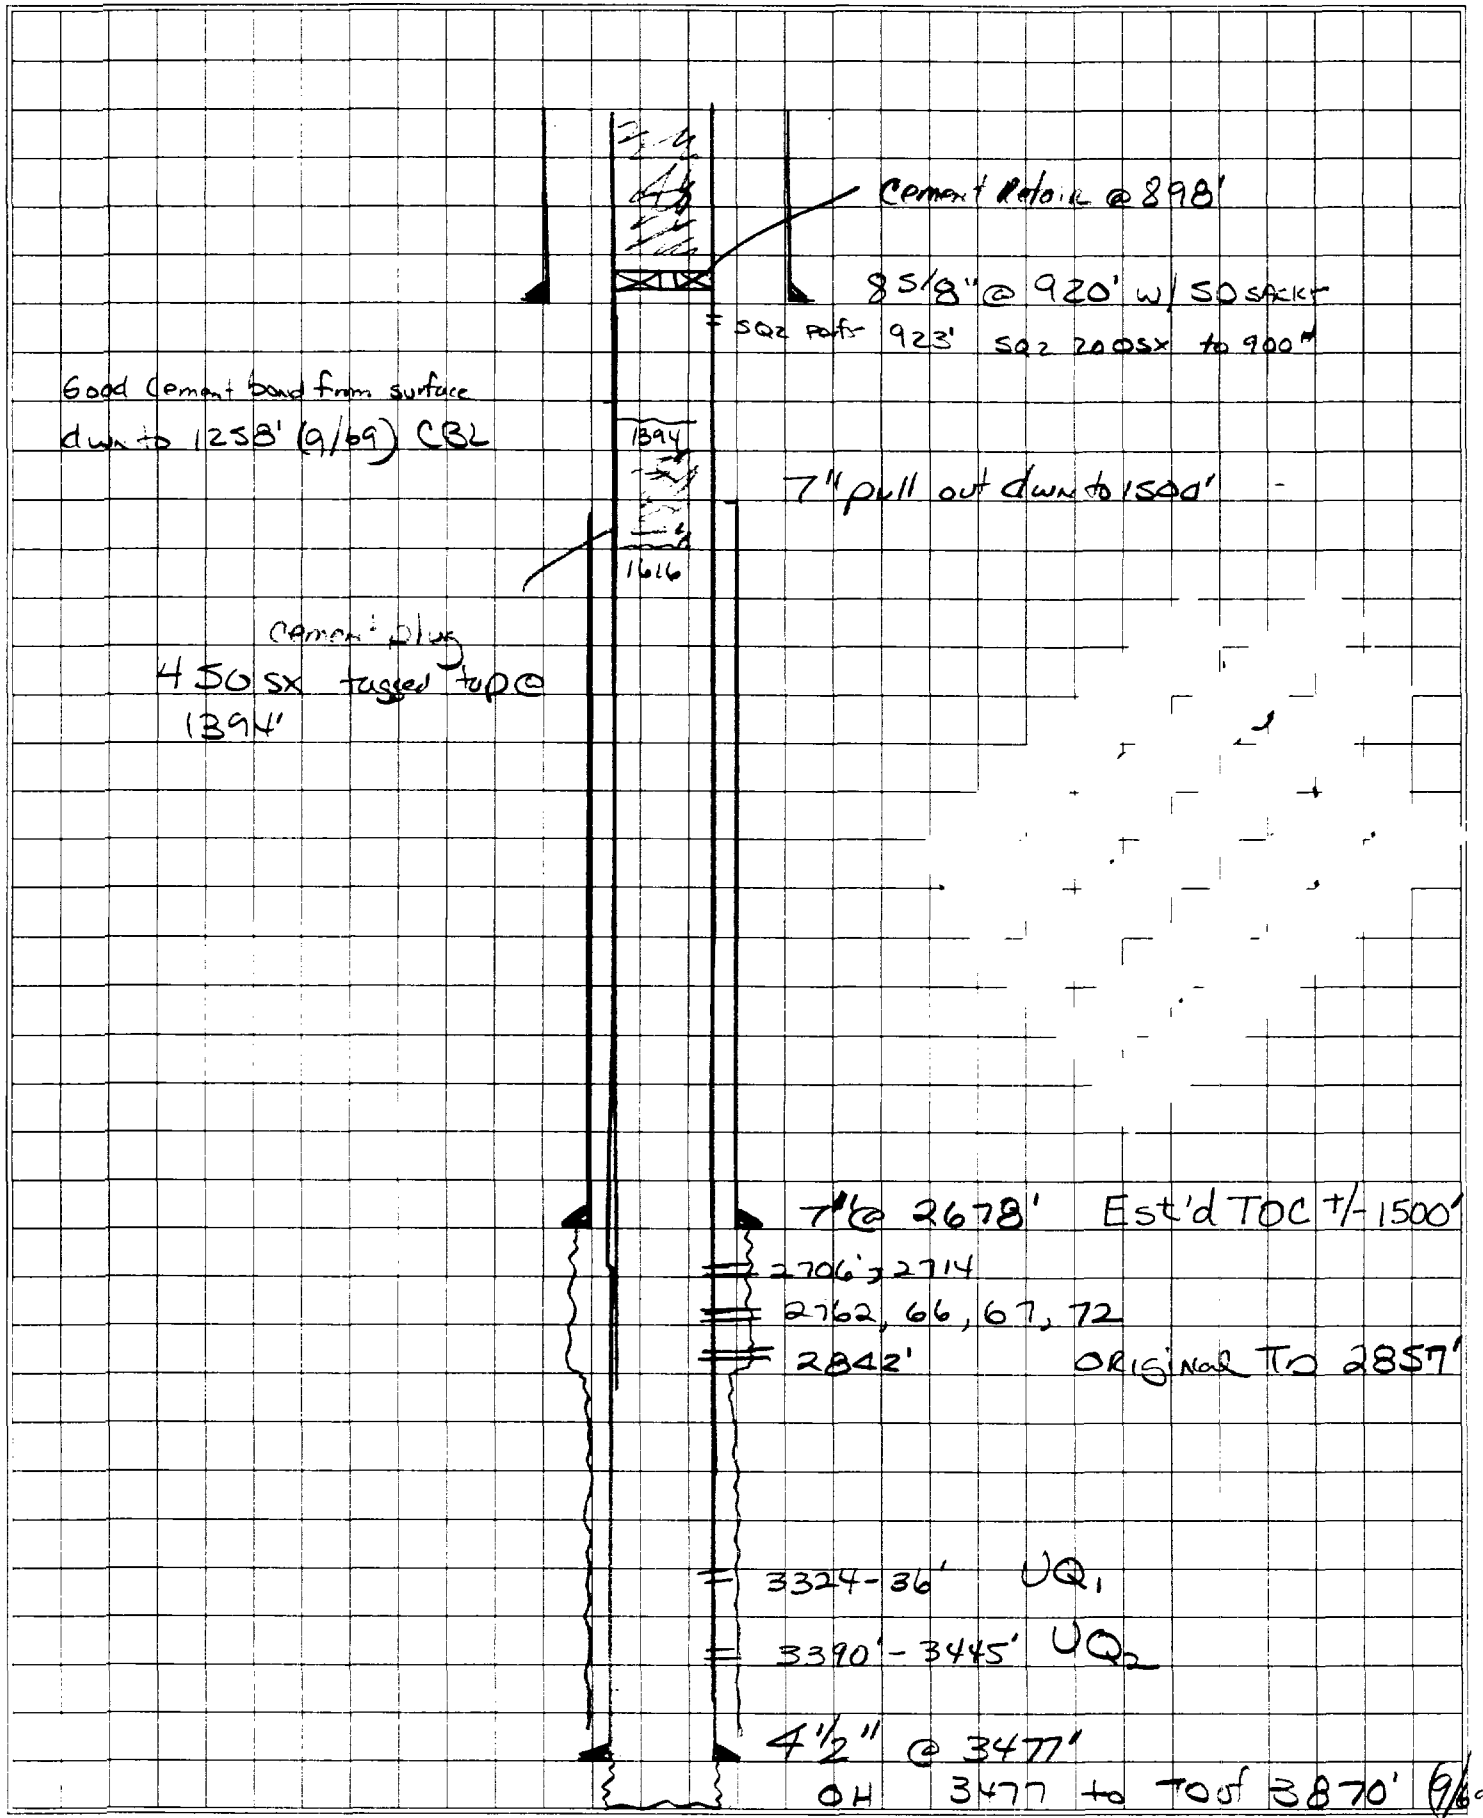 Cement Retain @ 898'
8 5/8" @ 920' w/ 50 SACKS
SQZ perfs 923' SQZ 200SX to 900"
Good Cement bond from surface
dwn to 1258' (9/69) CBL
1394
7" pull out dwn to 1500'
1616
cement plug
450 SX tagged top @
1394'
7" @ 2678' Est'd TOC +/- 1500'
2706', 2714
2762, 66, 67, 72
2842' ORIGINAL TD 2857'
3324-36' UQ1
3390' - 3445' UQ2
4 1/2" @ 3477'
OH 3477 to TD of 3870'